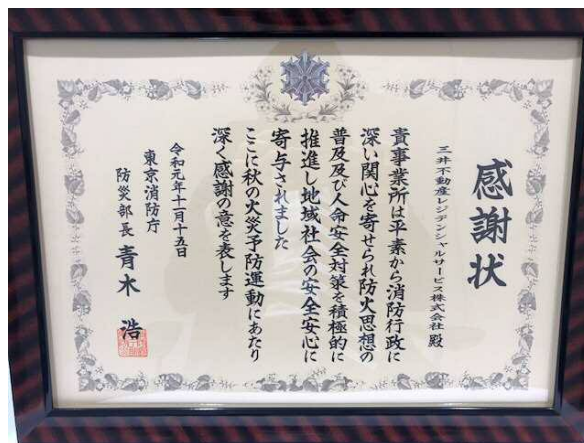 感謝状
三井不動産レジデンシャルサービス株式会社 殿
貴事業所は平素から消防行政に
深い関心を寄せられ防火思想の
普及及び人命安全対策を積極的に
推進し地域社会の安全安心に
寄与されました
ここに秋の火災予防運動にあたり
深く感謝の意を表します
令和元年十一月十五日
東京消防庁
防災部長 青木 浩